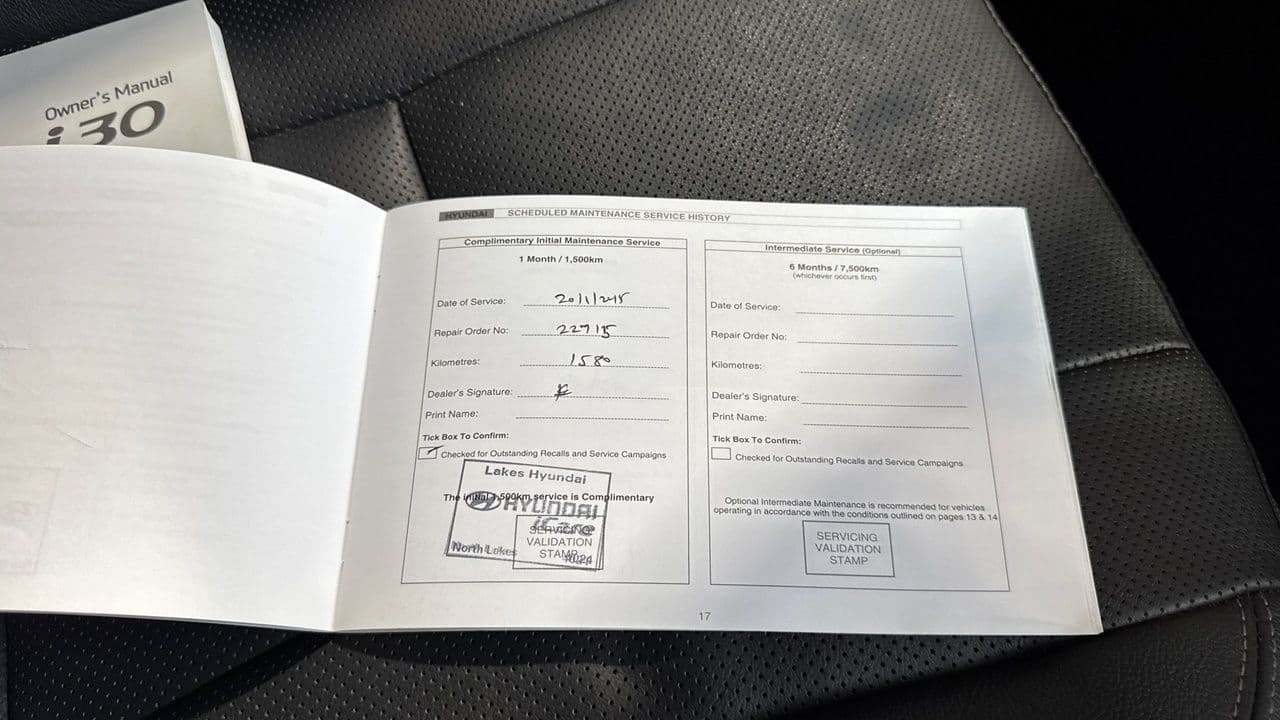 Owner's Manual
i30
HYUNDAI SCHEDULED MAINTENANCE SERVICE HISTORY
Complimentary Initial Maintenance Service
1 Month / 1,500km
Date of Service:
Repair Order No: 22715
Kilometres: 1580
Dealer's Signature:
Print Name:
Tick Box To Confirm:
Checked for Outstanding Recalls and Service Campaigns
Lakes Hyundai
The initial 1,500km service is Complimentary
HYUNDAI
iCare
SERVICING
VALIDATION
STAMP
North Lakes
Intermediate Service (Optional)
6 Months / 7,500km
(whichever occurs first)
Date of Service:
Repair Order No:
Kilometres:
Dealer's Signature:
Print Name:
Tick Box To Confirm:
Checked for Outstanding Recalls and Service Campaigns
Optional Intermediate Maintenance is recommended for vehicles
operating in accordance with the conditions outlined on pages 13 & 14
SERVICING
VALIDATION
STAMP
17